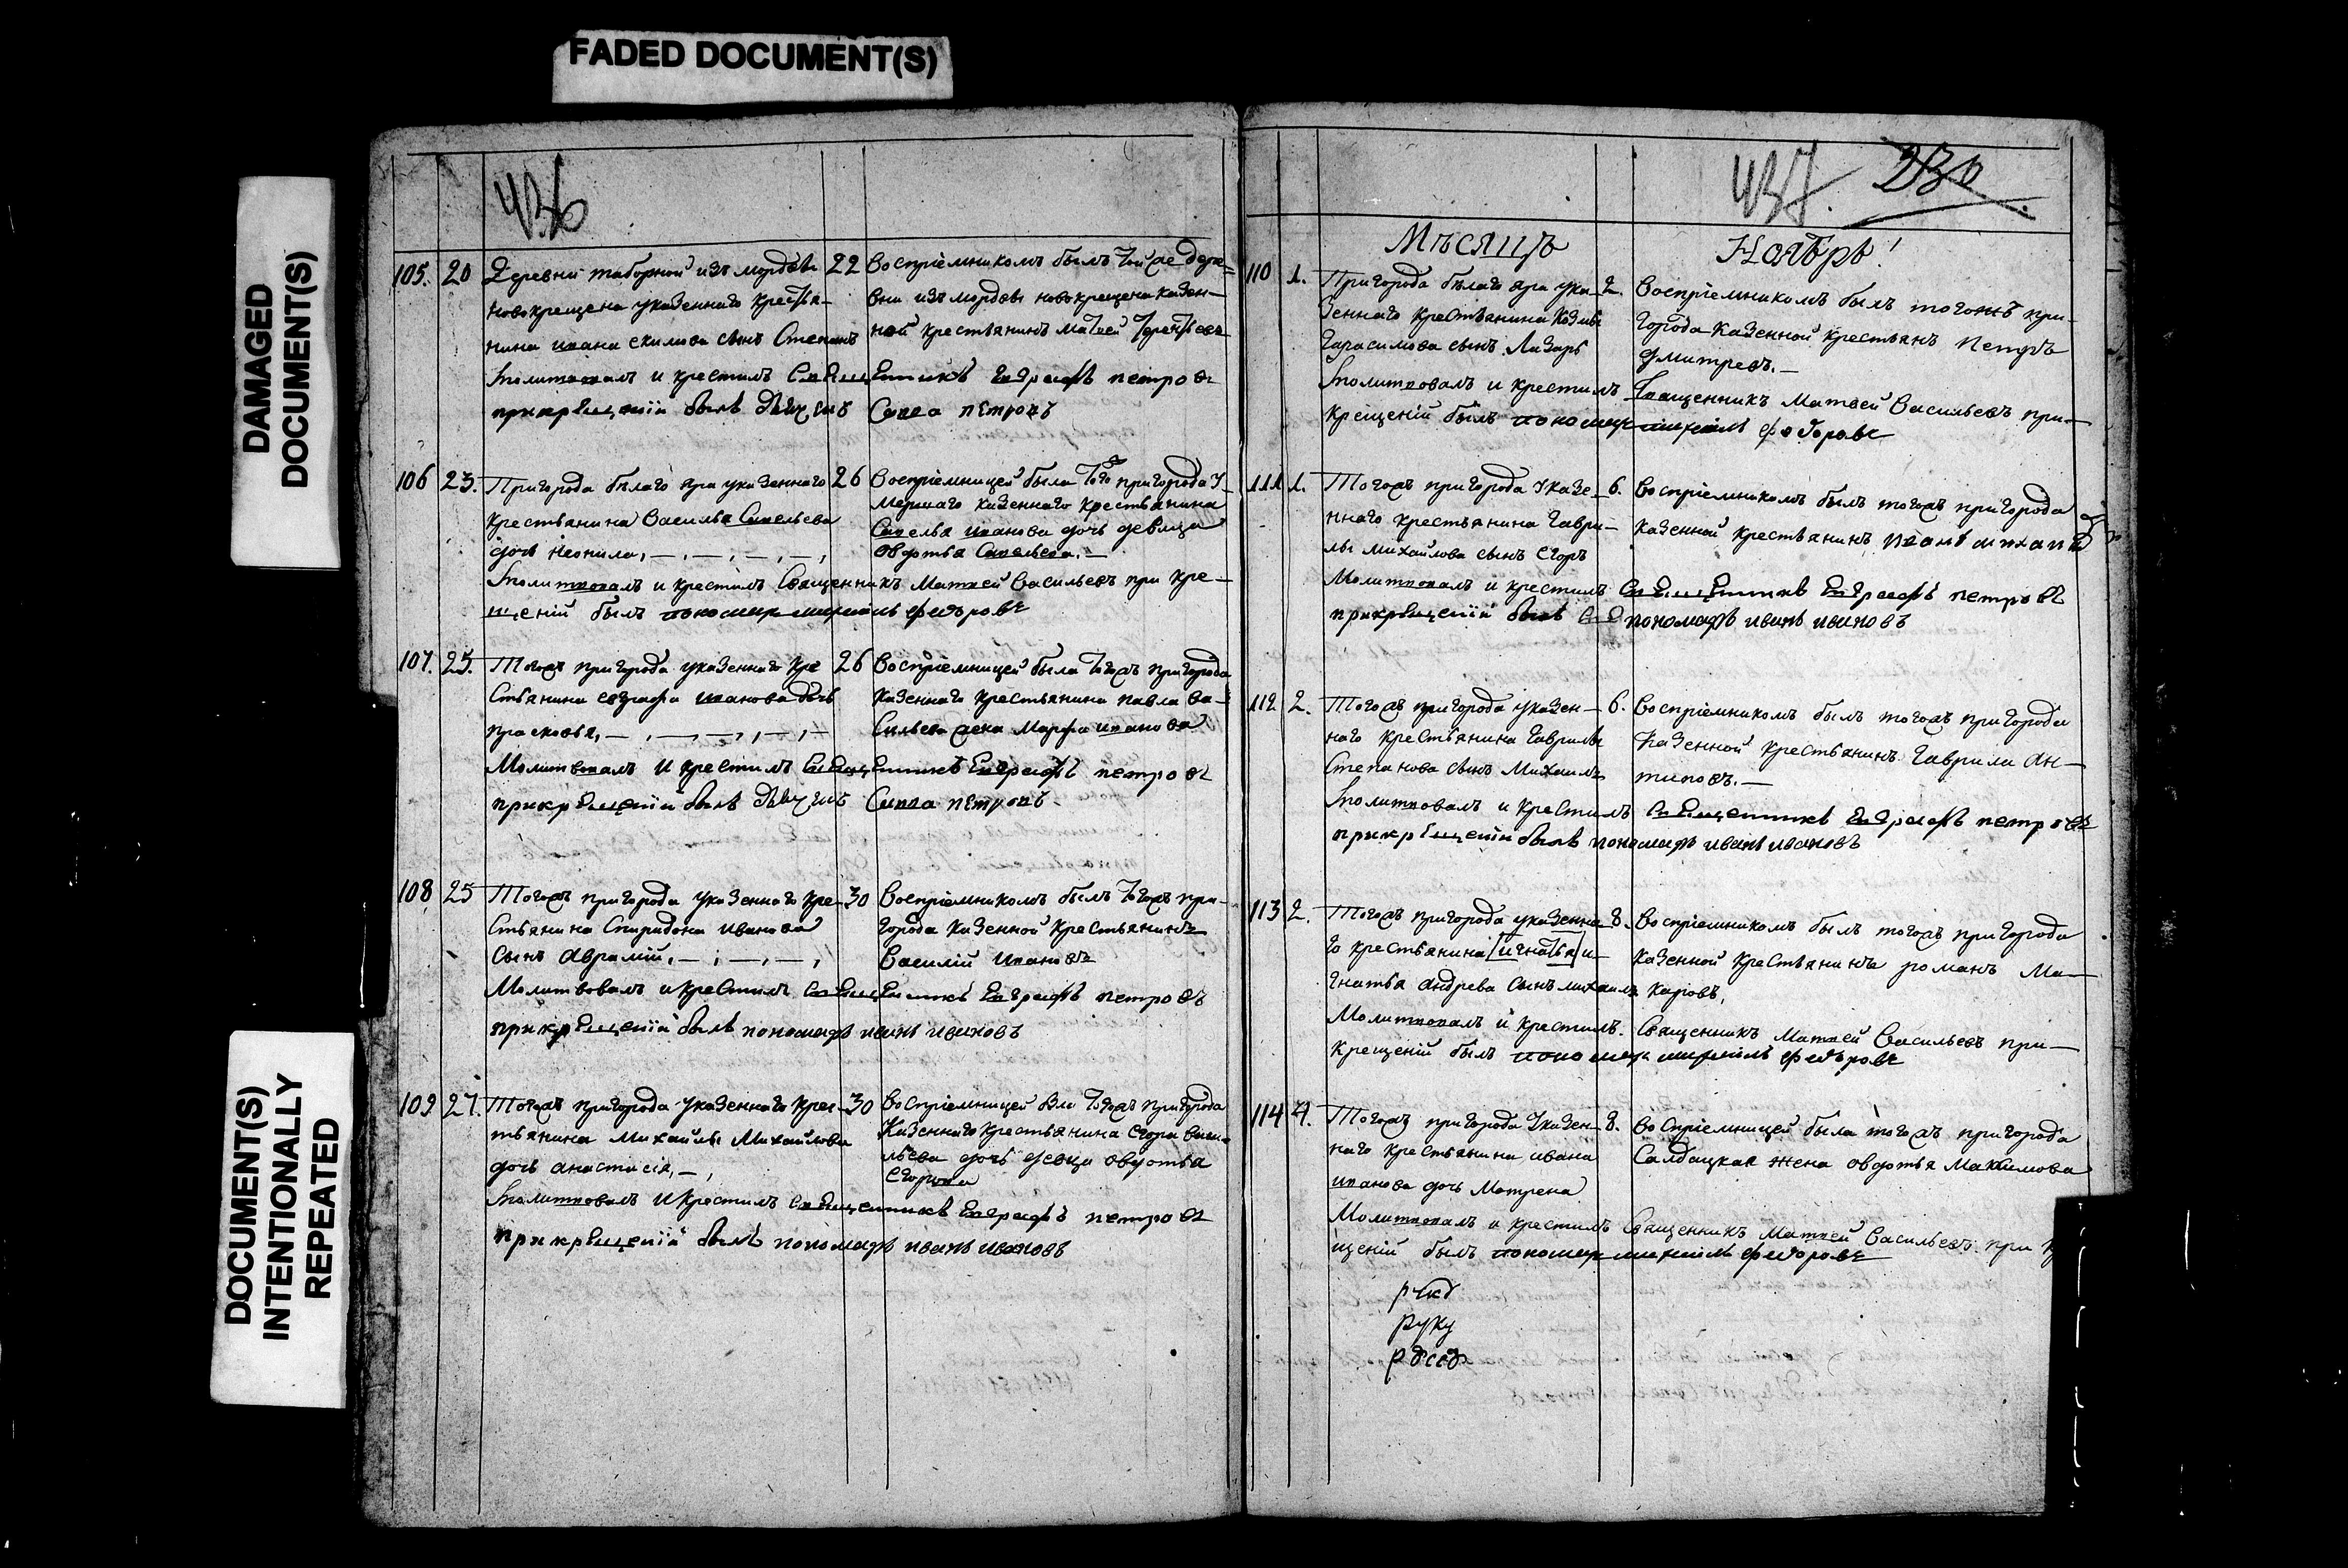 FADED DOCUMENT(S)
DAMAGED
DOCUMENT(S)
DOCUMENT(S)
INTENTIONALLY
REPEATED
436
105. 20 Деревни таборной изъ мордвы
новокрещена указеннаго крестья-
нина ивана екимова сынъ Степанъ
22 Воспріемникомъ былъ тойже дере-
вни изъ мордвы новокрещена казен-
ной крестьянинъ матвей терентьевъ
молитвовалъ и крестилъ Священникъ Евграфъ петровъ
прикрещеніи былъ дьячекъ Савва петровъ
106 23. Пригорода белаго яра указеннаго
крестьянина Василья Савельева
дочь неонила,
26 Воспріемницей была того пригорода у-
мершаго казеннаго крестьянина
Савелья иванова дочь девица
овдотья Савельева.
молитвовалъ и крестилъ Священникъ Матвей Васильевъ при кре-
щеній былъ пономарь михаилъ федоровъ
107. 25. Тогожъ пригорода указеннаго кре
стьянина евграфа иванова дочь
прасковья,
26 Воспріемницей была тогожъ пригорода
казеннаго крестьянина павла ва-
сильева жена Марфа иванова
Молитвовалъ и крестилъ Священникъ Евграфъ петровъ
прикрещеніи былъ дьячекъ Савва петровъ.
108 25 Тогожъ пригорода указеннаго кре-
стьянина Спиридона иванова
сынъ аврамій,
30 Воспріемникомъ былъ тогожъ при-
города казенной крестьянинъ
Василій ивановъ
Молитвовалъ и крестилъ Священникъ Евграфъ петровъ
прикрещеніи былъ пономарь иванъ ивановъ
109 27. Тогожъ пригорода указеннаго крес-
тьянина Михайлы Михайлова
дочь анастасія,
30 Воспріемницей была тогожъ пригорода
Казеннаго крестьянина егора васи-
льева дочь девица овдотья
егорова
молитвовалъ и крестилъ Священникъ Евграфъ петровъ
прикрещеніи былъ пономарь иванъ ивановъ
437. 230
Мѣсяцъ Ноябрь!
110 1. Пригорода белаго яра ука-
зеннаго крестьянина козмы
гарасимова сынъ Лазарь
2. Воспріемникомъ былъ тогожъ при-
города казенной крестьянъ петръ
дмитревъ.
молитвовалъ и крестилъ Священникъ Матвей Васильевъ при-
крещеній былъ пономарь михаилъ федоровъ
111 1. Тогожъ пригорода указе-
ннаго крестьянина гаври-
лы михайлова сынъ егоръ
6. Воспріемникомъ былъ тогожъ пригорода
казенной крестьянинъ
Молитвовалъ и крестилъ Священникъ Евграфъ петровъ
прикрещеніи былъ пономарь иванъ ивановъ
112 2. Тогожъ пригорода указен-
наго крестьянина гаврилы
Степанова сынъ Михаилъ
6. Воспріемникомъ былъ тогожъ пригорода
казенной крестьянинъ гаврила ан-
типовъ.
молитвовалъ и крестилъ Священникъ Евграфъ петровъ
прикрещеніи былъ пономарь иванъ ивановъ
113 2. Тогожъ пригорода указенна-
го крестьянина [игнатья] и-
гнатья андрева сынъ михаилъ
8. Воспріемникомъ былъ тогожъ пригорода
казенной крестьянинъ романъ Ма-
каровъ,
Молитвовалъ и крестилъ. Священникъ Матвей Васильевъ при-
крещеній былъ пономарь михаилъ федоровъ
114 4. Тогожъ пригорода указен-
наго крестьянина ивана
иванова дочь Матрена
8. Воспріемницей была тогожъ пригорода
Салдацкая жена овдотья Макимова
Молитвовалъ и крестилъ Священникъ Матвей Васильевъ при
щеній былъ пономарь михаилъ федоровъ
руку